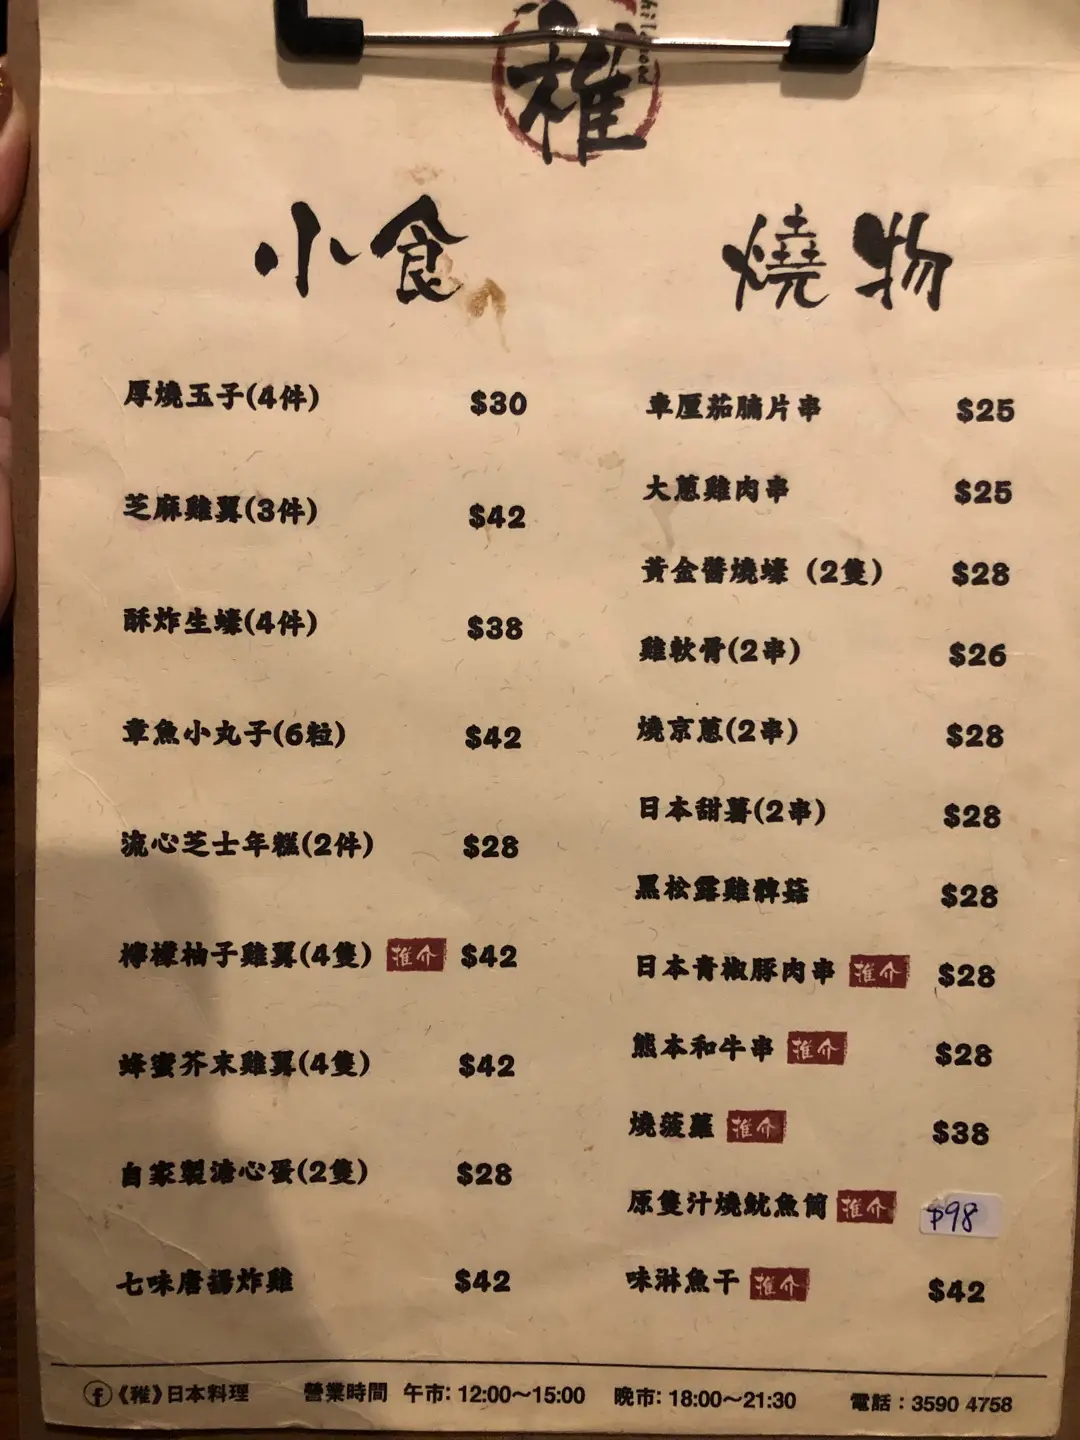 稚
小食
厚燒玉子(4件) $30
芝麻雞翼(3件) $42
酥炸生蠔(4件) $38
章魚小丸子(6粒) $42
流心芝士年糕(2件) $28
檸檬柚子雞翼(4隻) 推介 $42
蜂蜜芥末雞翼(4隻) $42
自家製溏心蛋(2隻) $28
七味唐揚炸雞 $42
燒物
車厘茄腩片串 $25
大蔥雞肉串 $25
黃金醬燒蠔 (2隻) $28
雞軟骨(2串) $26
燒京蔥(2串) $28
日本甜薯(2串) $28
黑松露雞髀菇 $28
日本青椒豚肉串 推介 $28
熊本和牛串 推介 $28
燒菠蘿 推介 $38
原隻汁燒魷魚筒 推介 $98
味淋魚干 推介 $42
《稚》日本料理 營業時間 午市: 12:00~15:00 晚市: 18:00~21:30 電話：3590 4758